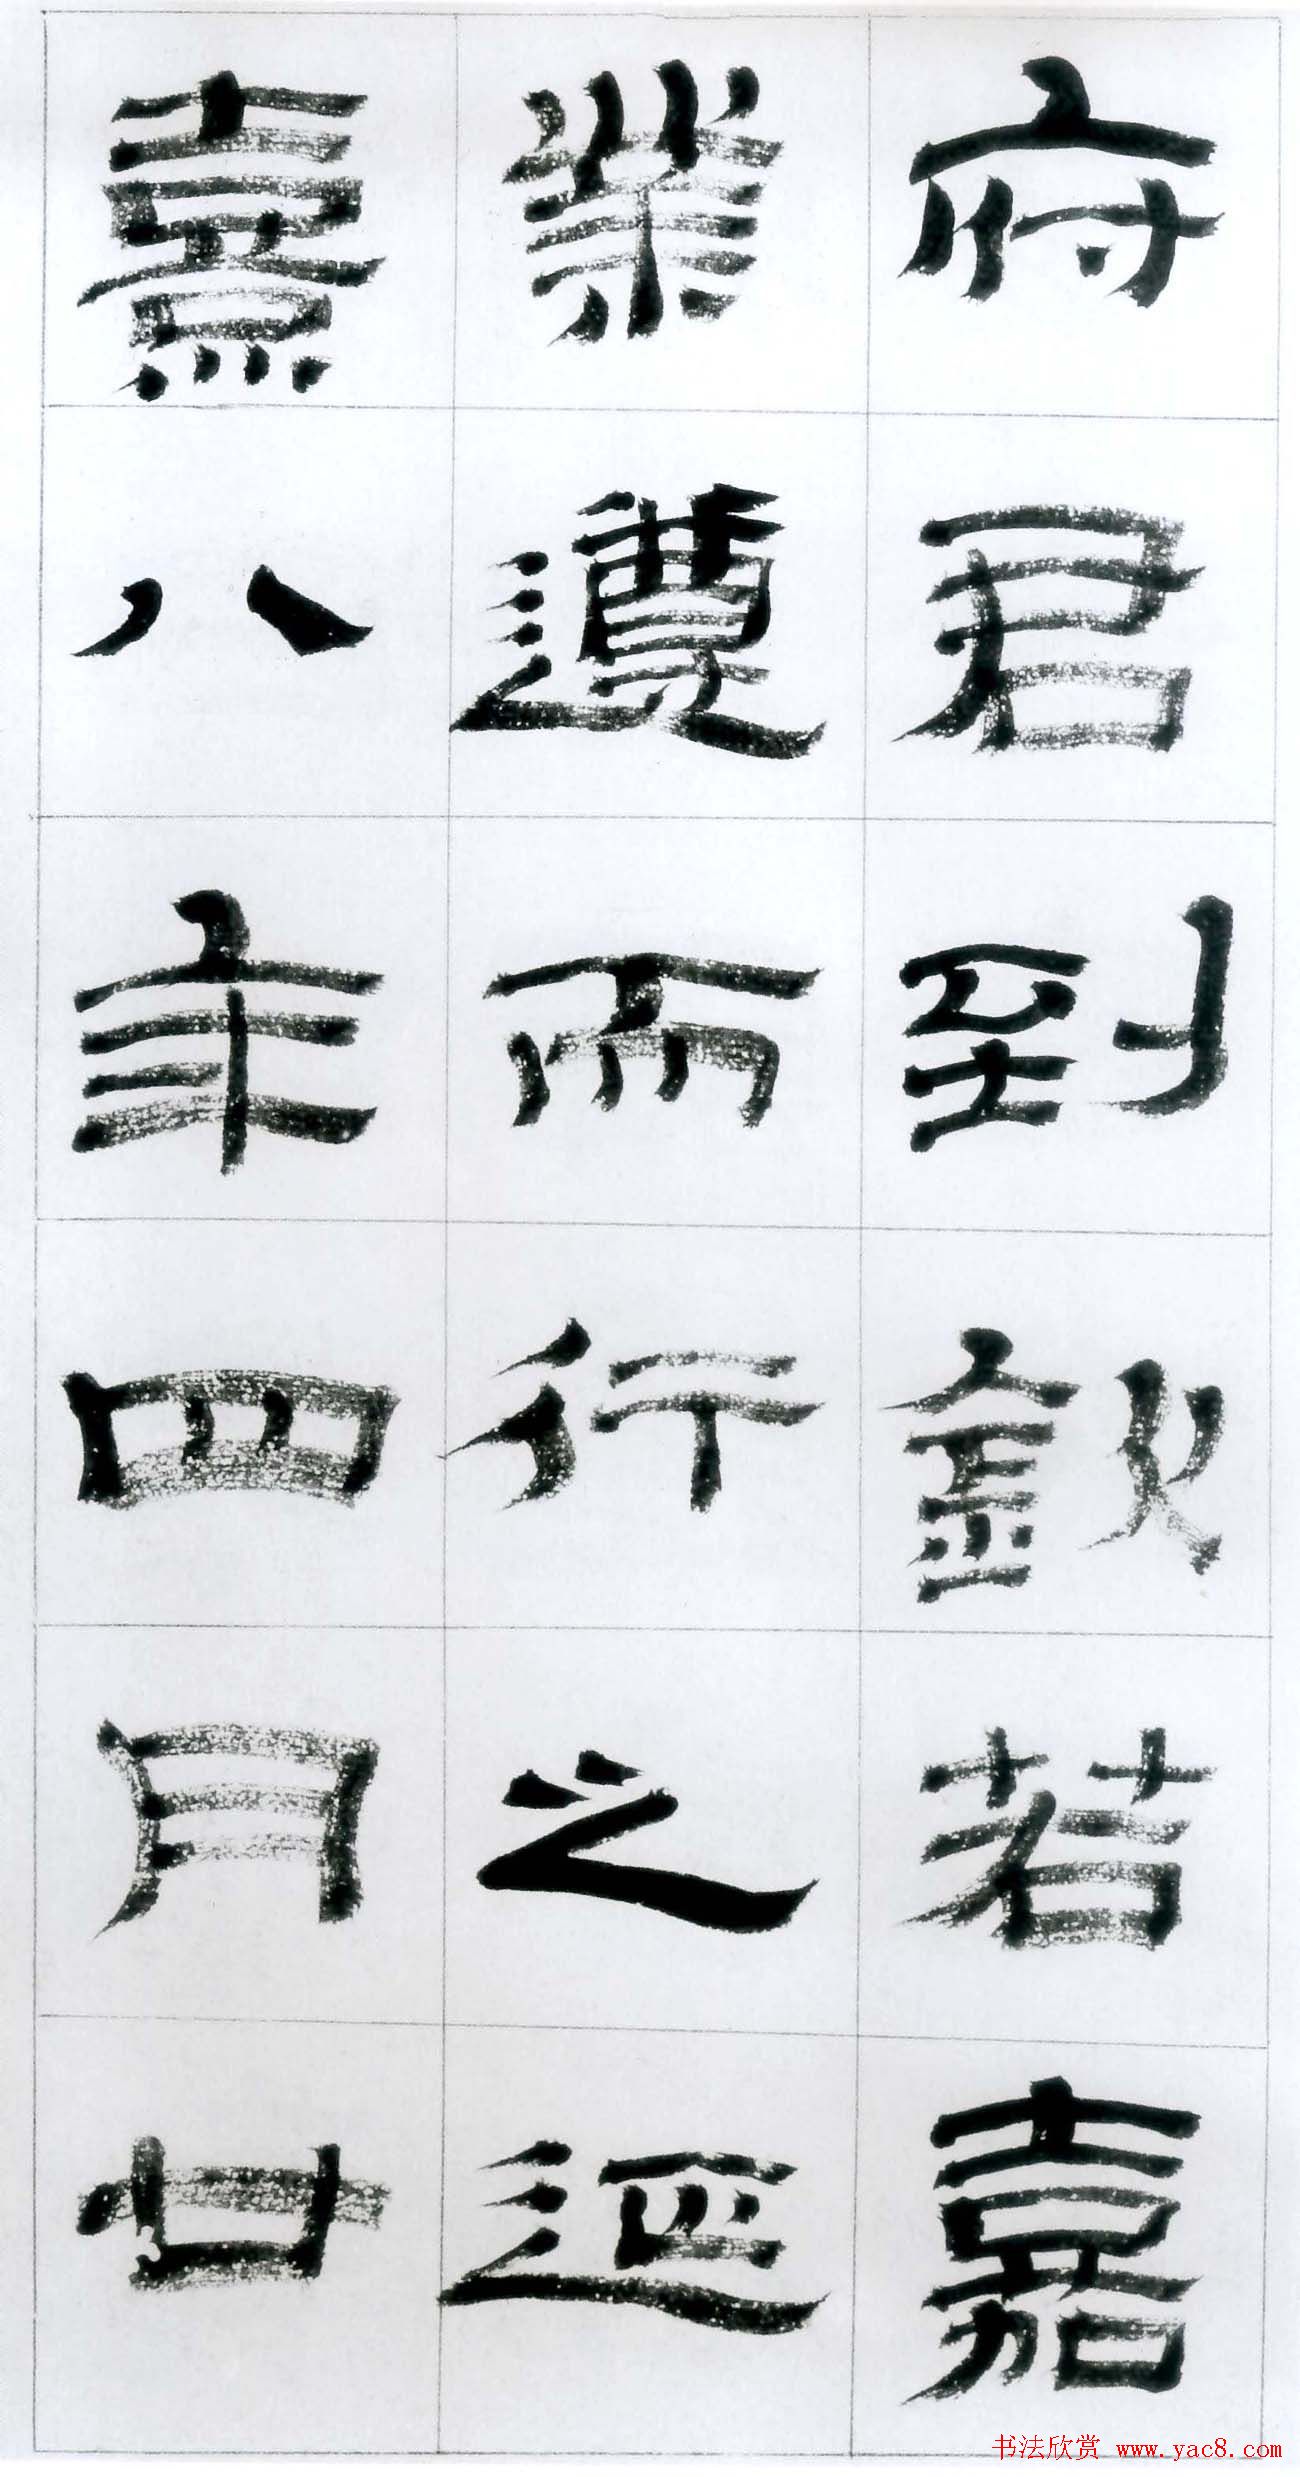 府君到欽若嘉
業遵而行之延
熹八年四月廿
书法欣赏 www.yac8.com